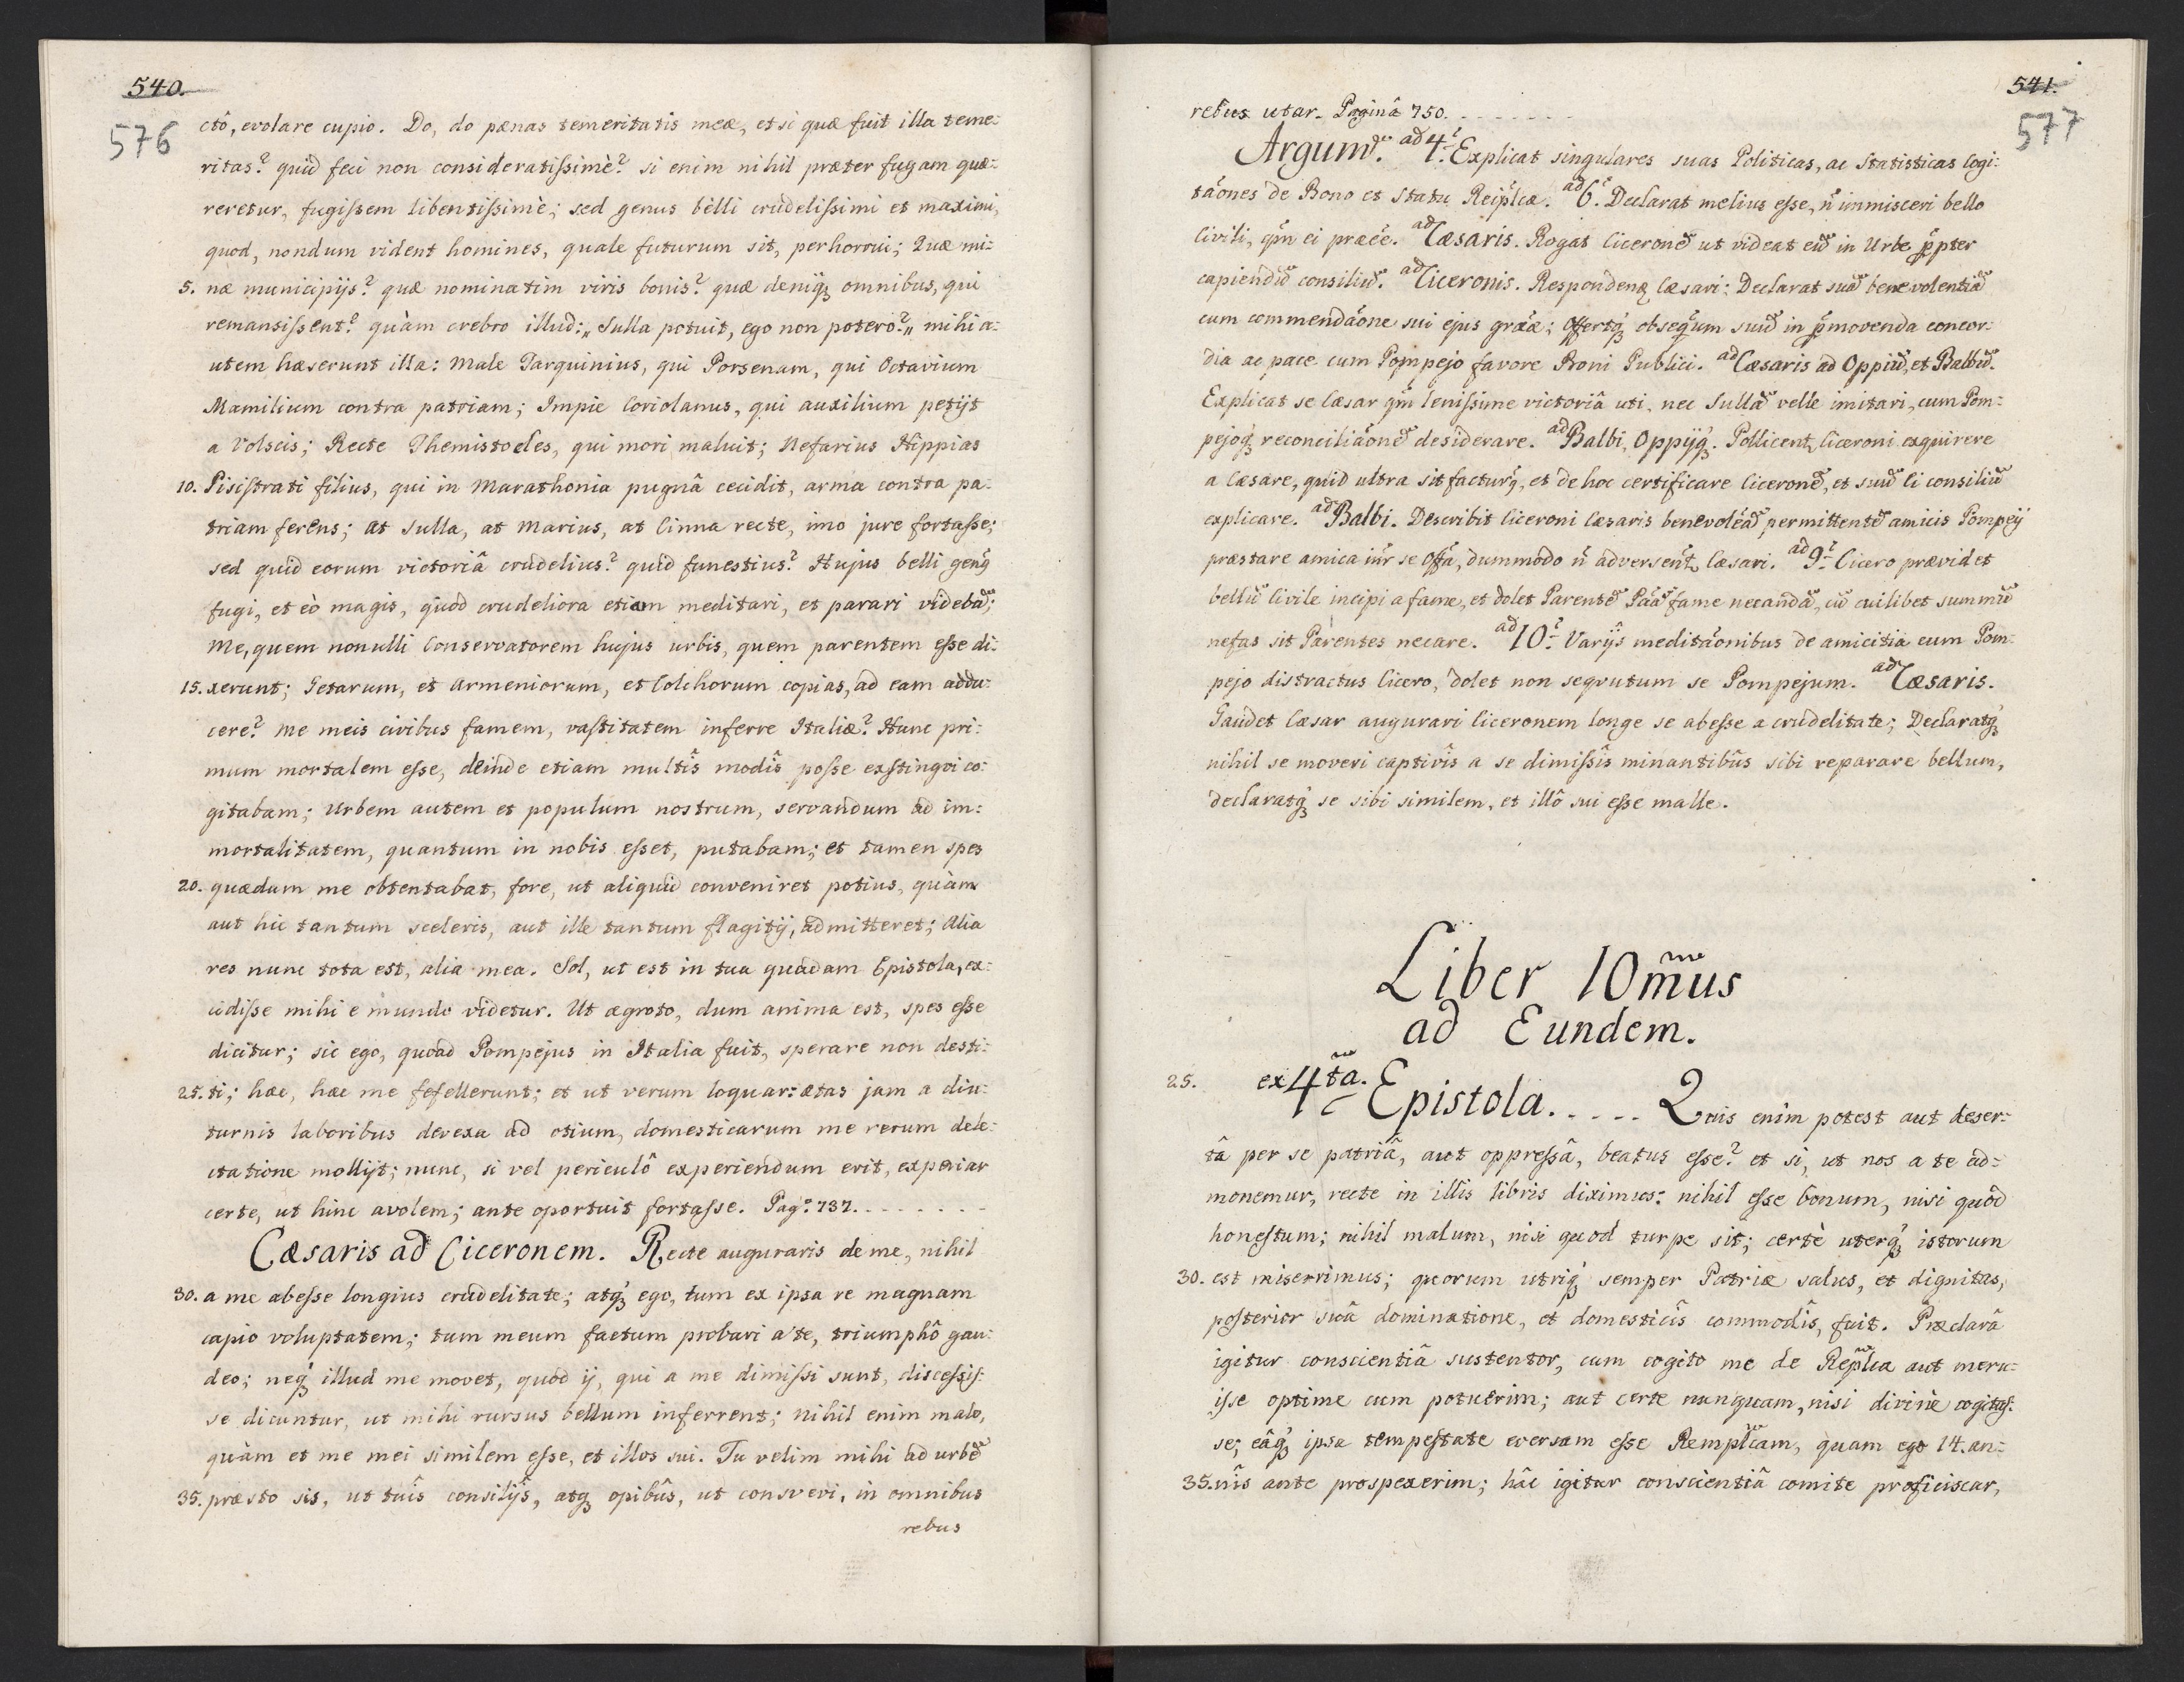 540.
576
ctô, evolare cupio. Do, do pænas temeritatis meæ, etsi quæ fuit illa teme:
ritas? quid feci non consideratissimè? si enim nihil præter fugam quæ:
reretur, fugissem libentissimè; sed genus belli crudelissimi et maximi,
quod, nondum vident homines, quale futurum sit, perhorrui; Quæ mi:
5. næ municipijs? quæ nominatim viris bonis? quæ deniq; omnibus, qui
remansissent? quàm crebro illud: „Sulla potuit, ego non potero?„ mihi a:
utem hæserunt illa: Male Tarquinius, qui Porsenam, qui Octavium
Mamilium contra patriam; Impie Coriolanus, qui auxilium petijt
a Volscis; Recte Themistocles, qui mori maluit; Nefarius Hippias
10. Pisistrati filius, qui in Marathonia pugnâ cecidit, arma contra pa:
triam ferens; at Sulla, at Marius, at Cinna recte, imo jure fortasse;
sed quid eorum victoriâ crudelius? quid funestius? Hujus belli geng
fugi, et eò magis, quod crudeliora etiam meditari, et parari videbā;
Me, quem nonulli Conservatorem hujus urbis, quem parentem esse di:
15. xerunt; Getarum, et Armeniorum, et Colchorum copias, ad eam addu:
cere? me meis civibus famem, vastitatem inferre Italiæ? Hunc pri:
mum mortalem esse, deinde etiam multîs modîs posse exstingvi co:
gitabam; Urbem autem et populum nostrum, servandum ad im:
mortalitatem, quantum in nobis esset, putabam; et tamen spes
20. quædum me obtentabat, fore, ut aliquid conveniret potius, quàm
aut hic tantum sceleris, aut ille tantum flagitij, admitteret; Alia
res nunc tota est, alia mea. Sol, ut est in tua quadam Epistola, ex:
cidisse mihi e mundo videtur. Ut ægroto, dum anima est, spes esse
dicitur; sic ego, quoad Pompejus in Italia fuit, sperare non desti:
25. ti; hæc, hæc me fefellerunt; et ut verum loquar: ætas jam a diu:
turnis laboribus devexa ad otium, domesticarum me rerum dele:
ctatione mollijt; nunc, si vel periculô experiendum erit, experiar
certe, ut hinc avolem; ante oportuit fortasse. Pag: 737. . . . . . . .
Cæsaris ad Ciceronem. Recte auguraris de me, nihil
30. a me abesse longius crudelitate; atq; ego, tum ex ipsa re magnam
capio voluptatem; tum meum factum probari a te, triumphô gau:
deo; neq; illud me movet, quòd ij, qui a me dimissi sunt, discessis:
se dicuntur, ut mihi rursus bellum inferrent; Nihil enim malo,
quàm et me mei similem esse, et illos sui. Tu velim mihi ad urbē
35. præsto sis, ut tuîs consilijs, atq; opibûs, ut consvevi, in omnibus
rebus
541.
577
rebus utar. Paginâ 750. . . . . . .
Argum. ad 4. Explicat singulares suas Politicas, ac Statisticas Cogi:
taōnes de Bono et Statu Reiplcæ. ad 6. Declarat melius esse, ñ immisceri bello
Civili, qm ei præēe. ad Cæsaris. Rogat Ciceronē ut videat eū in Urbe ppter
capiendū consiliū. ad Ciceronis. Respondeng Cæsari: Declarat suā benevolentiā
cum commendaōne sui ejus gratæ; Offertq; obseqūum suū in pmovenda concor:
dia ac pace cum Pompejo favore Boni Publici. ad Cæsaris ad Oppiū, et Balbū.
Explicat se Cæsar qm lenissime victoriâ uti, nec Sullā velle imitari, cum Pom:
pejoq; reconciliaōnē desiderare. ad Balbi, Oppijq;. Pollicent Ciceroni exquirere
a Cæsare, quid ultra sit facturg, et de hoc certificare Ciceronē, et suū Ci consiliū
explicare. ad Balbi. Describit Ciceroni Cæsaris benevoleā, permittentē amicis Pompeij
præstare amica inr se offa, dummodo ñ adversent Cæsari. ad 9. Cicero prævidet
bellū Civile incipi a fame, et dolet Parentē Páā fame necandā, cū cuilibet summū
nefas sit Parentes necare. ad 10. Varijs meditaōnibus de amicitia cum Pom:
pejo distractus Cicero, dolet non seqvutum se Pompejum. ad Cæsaris.
Gaudet Cæsar augurari Ciceronem longe se abesse a crudelitate; Declaratq;
nihil se moveri captivîs a se dimissîs minantibûs sibi reparare bellum,
declaratq; se sibi similem, et illô sui esse malle.
Liber 10mus
ad Eundem.
25. ex 4ta. Epistola. . . . . Quis enim potest aut deser:
tâ per se patriâ, aut oppressâ, beatus esse? et si, ut nos a te ad:
monemur, recte in illis libris diximus: nihil esse bonum, nisi quod
honestum; nihil malum, nisi quod turpe sit; certè uterq; istorum
30. est miserrimus; quorum utriq; semper Patriæ salus, et dignitas,
posterior suâ dominatione, et domesticîs commodîs, fuit. Præclarâ
igitur conscientiâ sustentor, cum cogito me de Replca aut meru:
isse optime cum potuerim; aut certe nunquam, nisi divinè cogitas:
se; eâq; ipsa tempestate eversam esse Remplcam, quam ego 14. an:
35. nîs ante prospexerim; hâc igitur conscientiâ comite proficiscar,